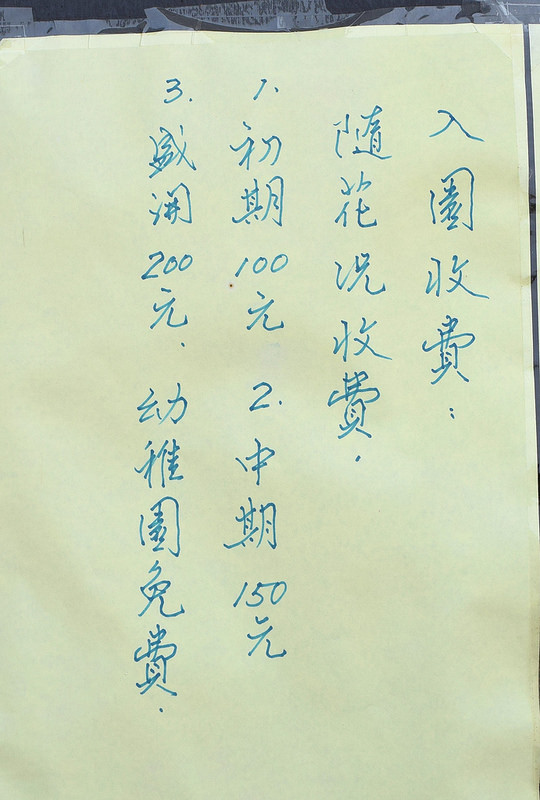 入園收費:
隨花況收費.
1.初期100元 2.中期150元
3.盛開200元.幼稚園免費.